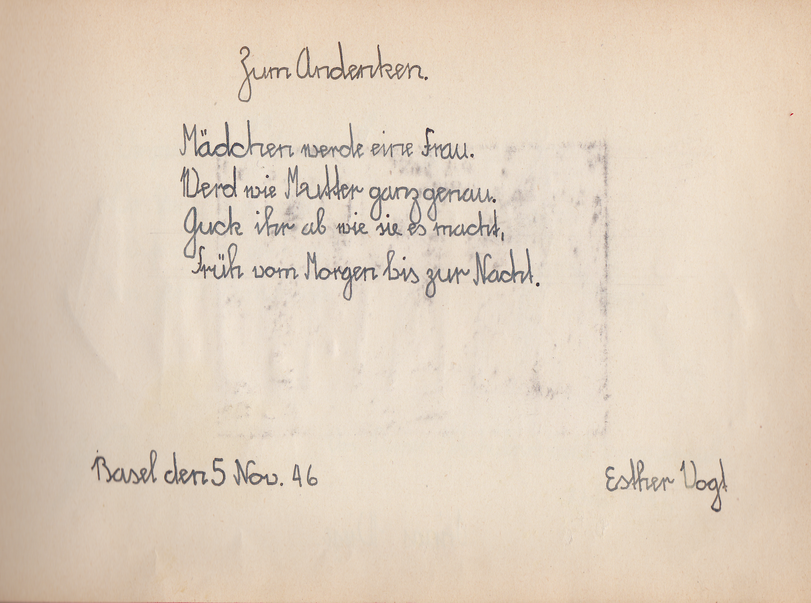 Zum Andenken.
Mädchen werde eine Frau.
Werd wie Mutter ganz genau.
Guck ihr ab wie sie es macht,
Früh vom Morgen bis zur Nacht.
Basel den 5 Nov. 46
Esther Vogt